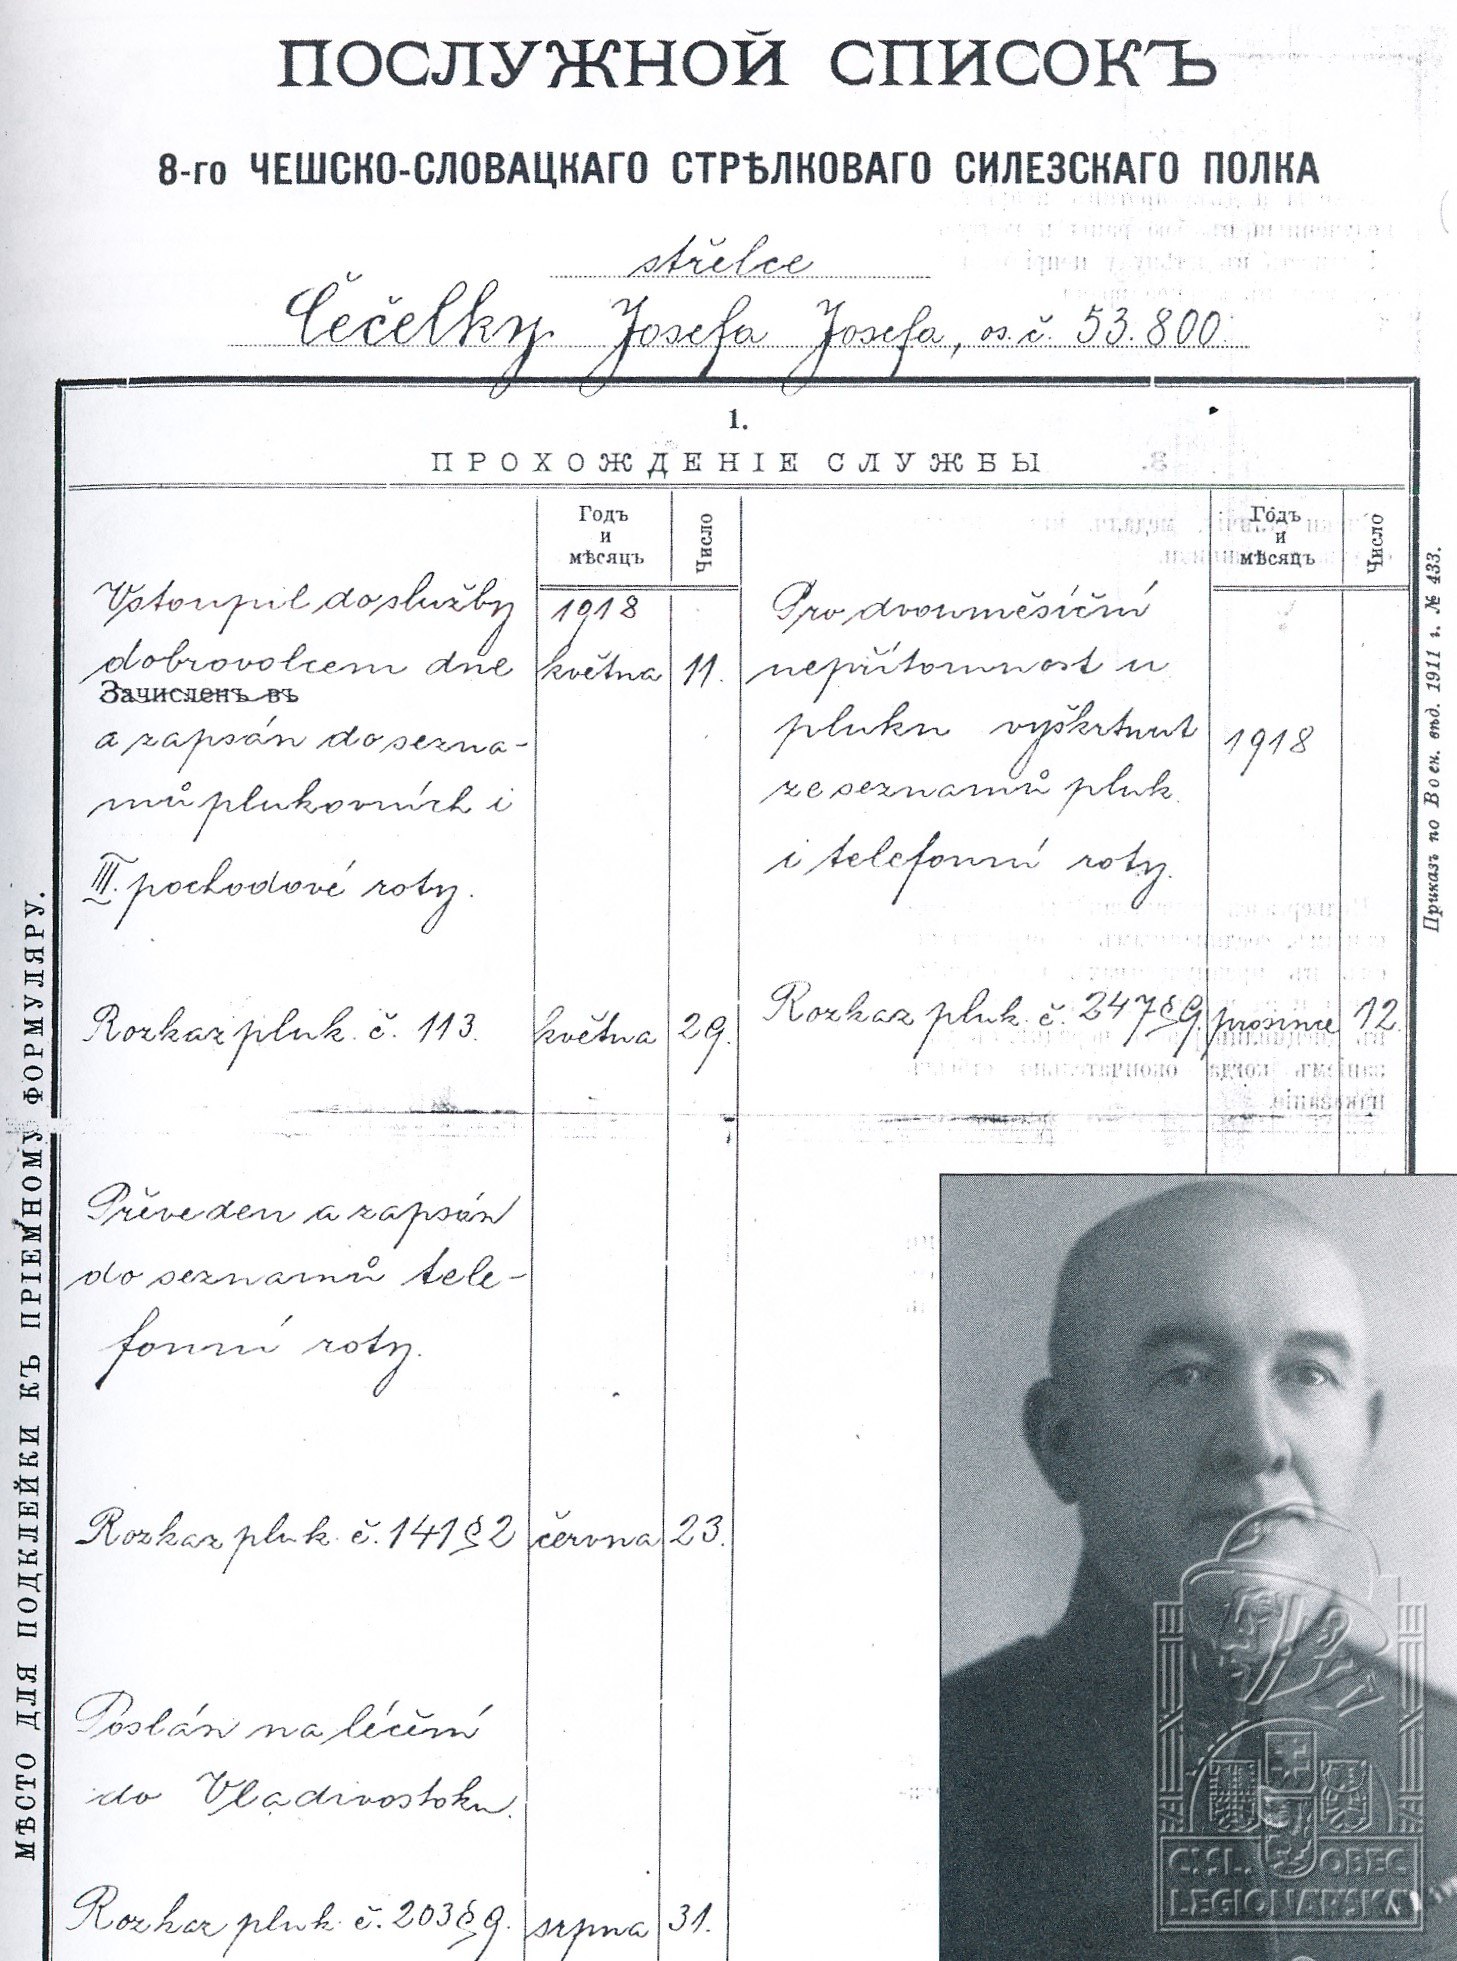 ПОСЛУЖНОЙ СПИСОКЪ
8-го ЧЕШСКО-СЛОВАЦКАГО СТРѢЛКОВАГО СИЛЕЗСКАГО ПОЛКА
střelce
Čečelky Josefa Josefa, os. č. 53.800.
1.
ПРОХОЖДЕНІЕ СЛУЖБЫ
Годъ
и
мѣсяцъ
Число
Vstoupil do služby 1918
dobrovolcem dne května 11.
Зачисленъ въ
a zapsán do sezna-
mů plukovních i
III. pochodové roty.
Rozkaz pluk. č. 113. května 29.
Převeden a zapsán
do seznamů tele-
fonní roty.
Rozkaz pluk. č. 141 § 2 června 23.
Poslán na léčení
do Vladivostoku.
Rozkaz pluk. č. 203 § 9. srpna 31.
Годъ
и
мѣсяцъ
Число
Pro dvouměsíční
nepřítomnost u
pluku vyškrtnut 1918
ze seznamů pluk.
i telefonní roty.
Rozkaz pluk. č. 247 § 9. prosince 12.
МѢСТО ДЛЯ ПОДКЛЕЙКИ КЪ ПРІЕМНОМУ ФОРМУЛЯРУ.
Приказъ по Воен. вѣд. 1911 г. № 433.
Č.SL. OBEC
LEGIONÁŘSKÁ